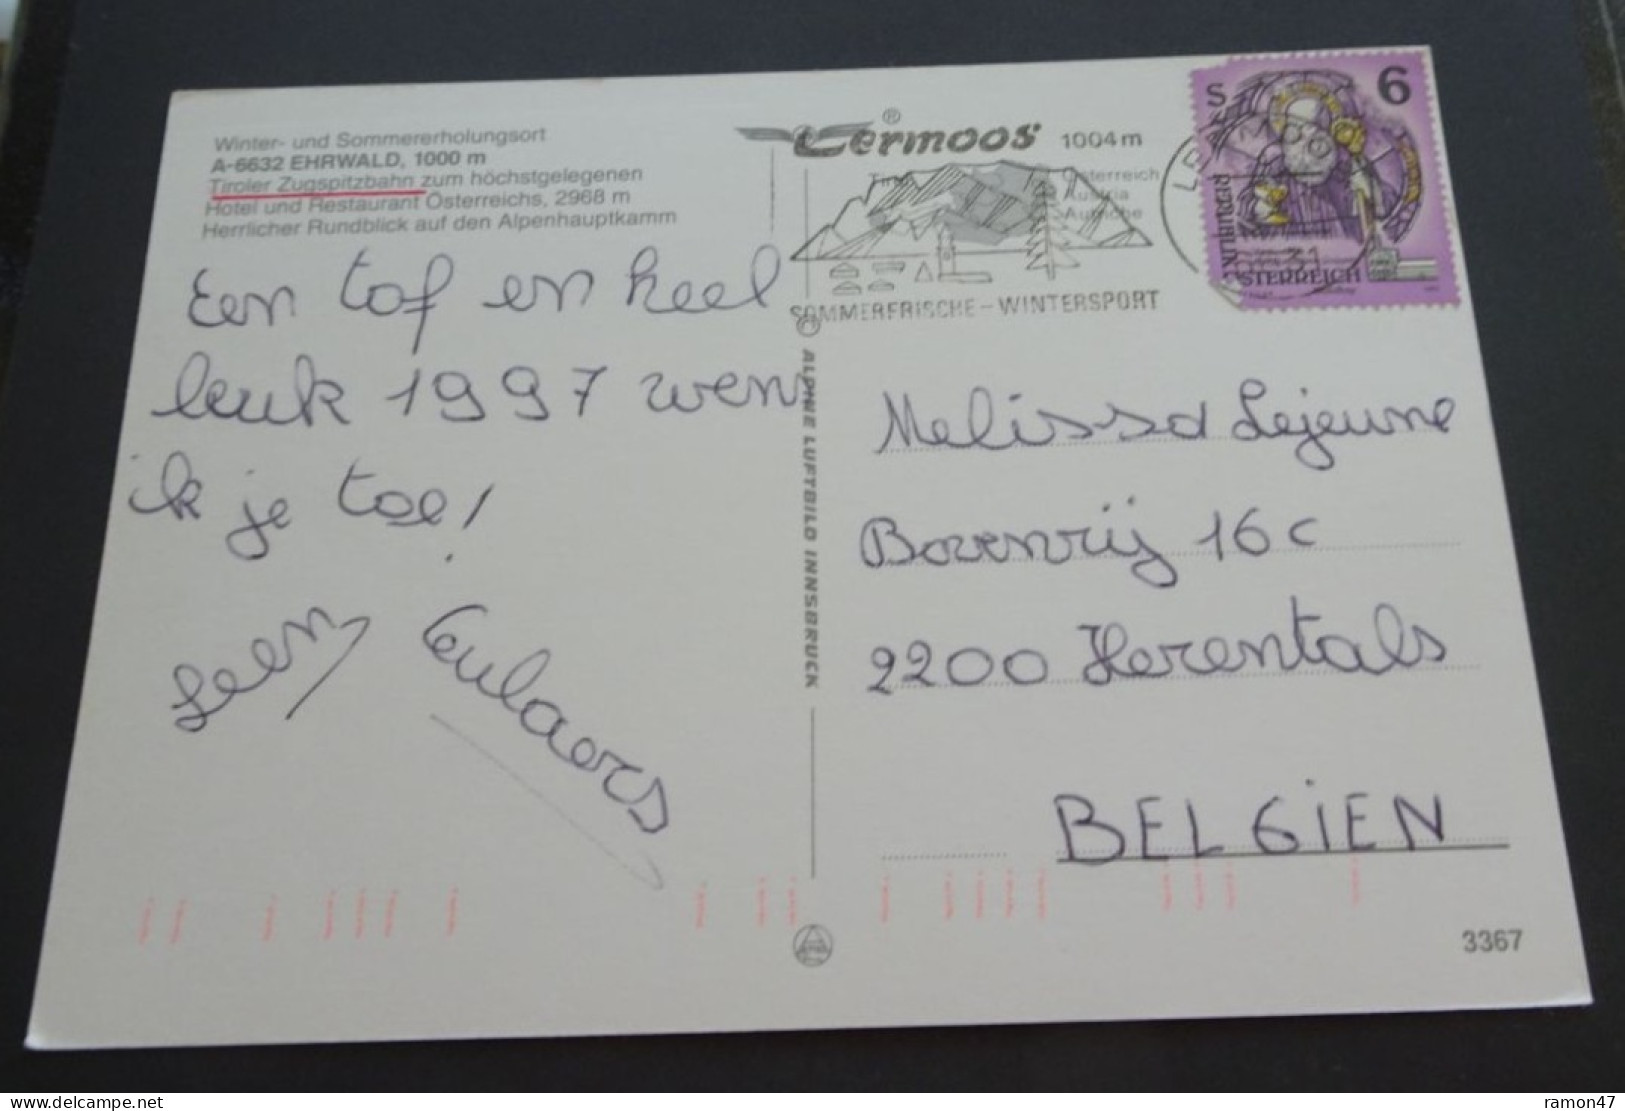 Winter- und Sommererholungsort
A-6632 EHRWALD, 1000 m
Tiroler Zugspitzbahn zum höchstgelegenen
Hotel und Restaurant Österreichs, 2968 m
Herrlicher Rundblick auf den Alpenhauptkamm
Een tof en heel
leuk 1997 wens
ik je toe!
Leen Ceulaers
® Lermoos 1004 m
Österreich
Austria
Autriche
SOMMERFRISCHE - WINTERSPORT
S 6
REPUBLIK
ÖSTERREICH
ALPINE LUFTBILD INNSBRUCK
Melissa Lejeune
Bovenrij 16c
2200 Herentals
BELGIEN
3367
ramon47